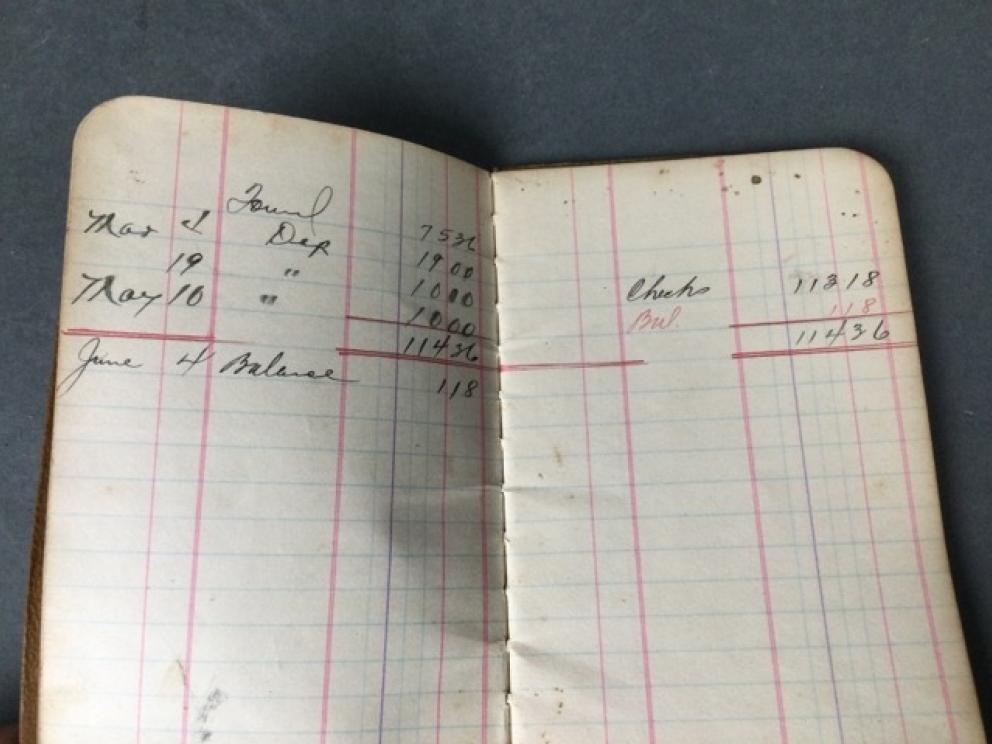 Forwd 7536
Mar 1 Dep 1900
19 " 1000
May 10 " 1000
11436
June 4 Balance 118
Checks 11318
Bal. 118
11436